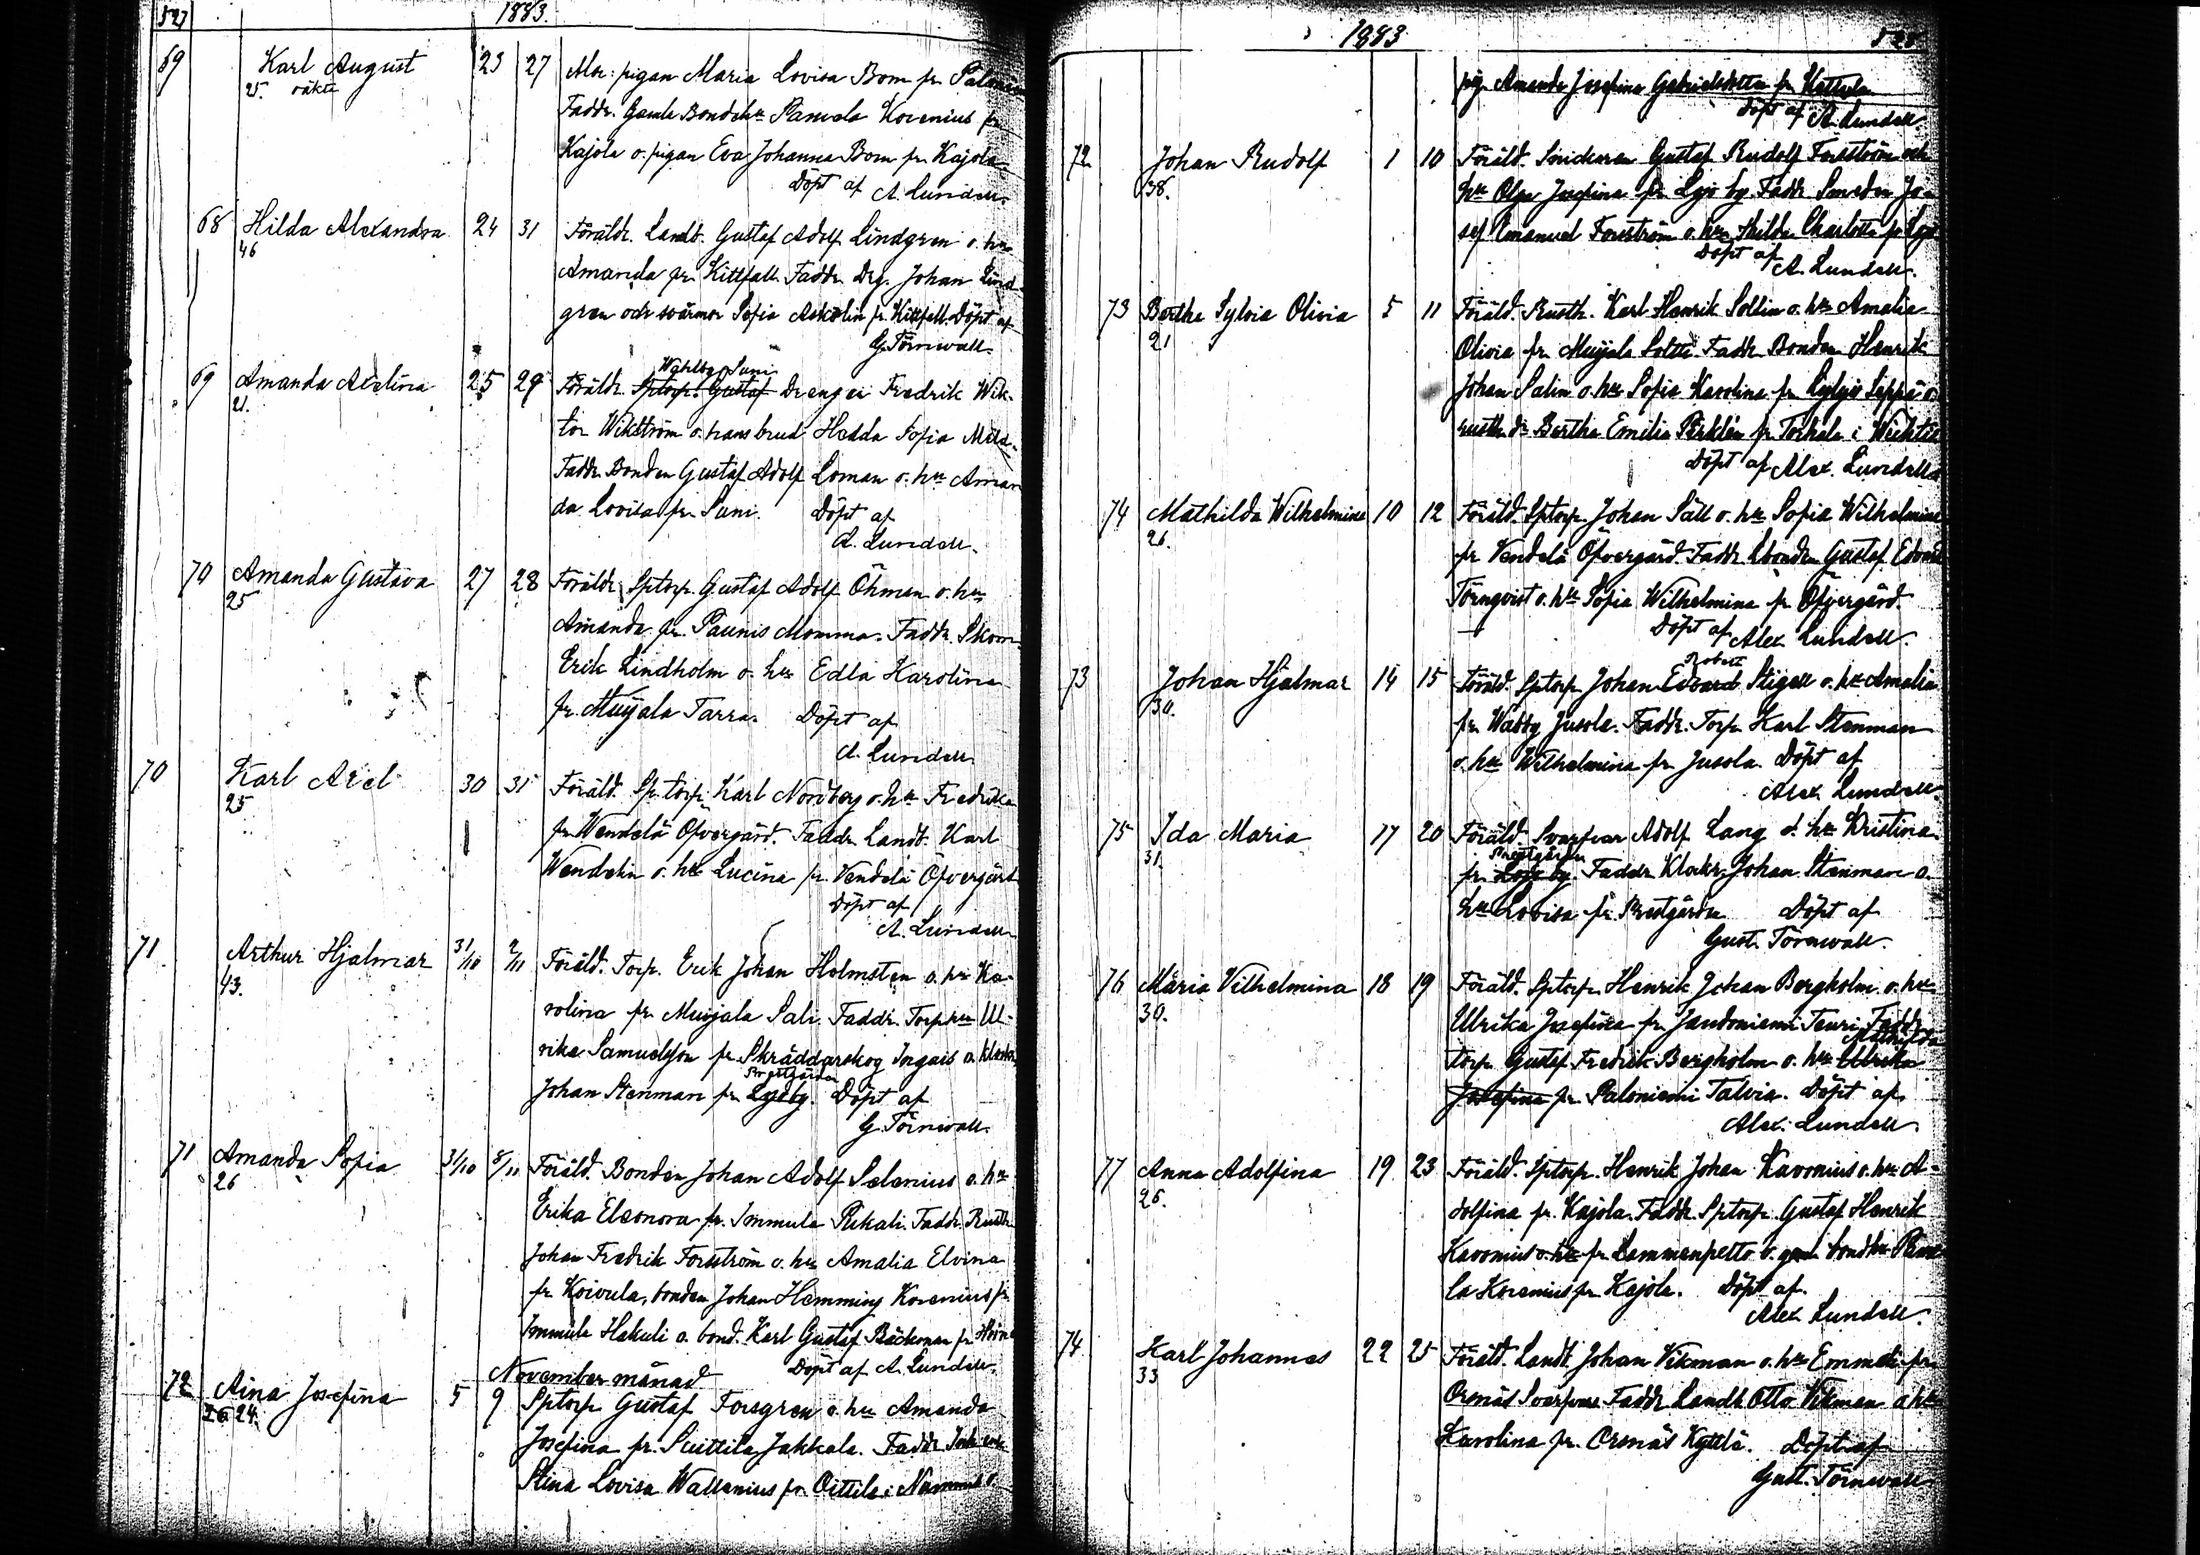 527
1883.
69 Karl August 23 27 Mor: pigan Maria Lovisa Bom fr.
25. oäkta
Faddr. Gamla Bondehu Pamela Korenius fr
Kajola o. pigan Eva Johanna Bom fr Kajola
Döpt af A. Lundell.
68 Hilda Alexandra 24 31 Föräldr. Landb. Gustaf Adolf Lindgren o. hu
46
Amanda fr. Kittfall. Faddr. Drg. Johan Lind-
gren och svärmor Sofia Askolin fr. Kittfall. Döpt af
G. Törnwall.
Wahlby Suni
69 Amanda Adelina 25 29 Föräldr. Sptorp. Gustaf Drengen Fredrik Wik-
21.
tor Wikström o. hans brud Hedda Sofia
Faddr. Bonden Gustaf Adolf Loman o. hu Aman
da Lovisa fr. Suni. Döpt af
A. Lundell.
70 Amanda Gustava 27 28 Föräldr. Sptorp. Gustaf Adolf Öhman o. hu
25
Amanda fr. Paunis Momma. Faddr. Skom
Erik Lindholm o. hu Edla Karolina
fr. Muijala Tarra. Döpt af
A. Lundell.
70 Karl Axel 30 31 Föräld. Sp.torp. Karl Nordberg o. hu Fredrika
25
fr Wendelä Öfvergård. Faddr. Landb. Karl
Wendelin o. hu Lucina fr. Vendelä Öfvergård
Döpt af
A. Lundell
71 Arthur Hjalmar 31/10 2/11 Föräld. Torp. Erik Johan Holmsten o. hu Ka-
43.
rolina fr. Muijala Sali. Faddr. Torphu Ul-
rika Samuelsson fr Skräddarskog Ingais o. klockr
Prestgården
Johan Stenman fr Lojoby. Döpt af
G. Törnwall.
71 Amanda Sofia 31/10 8/11 Föräld. Bonden Johan Adolf Selenius o. hu
26
Erika Eleonora fr. Immula Rekali. Faddr. Rusth
Johan Fredrik Forsström o. hu Amalia Elvina
fr Koivula, bonden Johan Hemming Korenius fr
Immula Hakuli o. bond. Karl Gustaf Bäckman fr
Döpt af A. Lundell.
November månad
72 Aina Josefina 5 9 Sptorp Gustaf Forsgren o. hu Amanda
26 24.
Josefina fr. Suittila Jakkala. Faddr.
Stina Lovisa Wallenius fr. Oittila i Nummis o.
1883 528
pig. Amanda Josefina Gabrielsdotter fr Kattula
Döpt af A. Lundell.
72 Johan Rudolf 1 10 Föräld. Snickaren Gustaf Rudolf Forsström och
38.
hu Olga Josefina fr Lojo by. Faddr. Smeden Jo-
sef Emanuel Forsström o. hu Hilda Charlotta fr Lojo
Döpt af
A. Lundell.
73 Bertha Sylvia Olivia 5 11 Föräld. Rusth. Karl Henrik Soltin o. hu Amalia
21
Olivia fr. Muijala Soltti. Faddr. Bonden Henrik
Johan Salin o. hu Sofia Karolina fr. Lylyis Seppä o.
rusth. dr Bertha Emilia fr Torhola i Wichtis
Döpt af Alex. Lundell
74 Mathilda Wilhelmina 10 12 Föräld. Sptorp. Johan Säll o. hu Sofia Wilhelmina
26.
fr. Vendelä Öfvergård. Faddr. Lbonden Gustaf Edvard
Törnqvist o. hu Sofia Wilhelmina fr Öfvergård.
Döpt af Alex. Lundell.
Robert
73 Johan Hjalmar 14 15 Föräld. Sptorp. Johan Edvard Stigell o. hu Amalia
30.
fr. Wabby Jusola. Faddr. Torp. Karl Stenman
o. hu Wilhelmina fr Jusola. Döpt af
Alex. Lundell.
75 Ida Maria 17 20 Föräld. Svarfvar Adolf Lang o. hu Kristina
31.
Prestgården
fr Lojo by. Faddr. Klockr. Johan Stenman o.
hu Lovisa fr Prestgården Döpt af
Gust. Törnwall.
76 Maria Vilhelmina 18 19 Föräld. Sptorp. Henrik Johan Bergholm o. hu
30.
Ulrika Josefina fr Jandoniemi Teuri. Faddr
Mathilda
torp. Gustaf Fredrik Bergholm o. hu Ulrika
Josefina fr. Paloniemi Talvia. Döpt af
Alex. Lundell
77 Anna Adolfina 19 23 Föräld. Sptorp. Henrik Johan Kavonius o. hu A-
26.
dolfina fr. Kajola. Faddr. Sptorp. Gustaf Henrik
Kavonius o. hu fr. Lammenpelto o. gamla bondhu Pame
la Korenius fr Kajola. Döpt af.
Alex. Lundell.
74 Karl Johannes 22 25 Föräld. Landb. Johan Vikman o. hu Emma fr
33
Ormnäs Svarfvars. Faddr. Landb. Otto Vikman o. hu
Karolina fr. Ormnäs Kyttlä. Döpt af
Gust. Törnwall